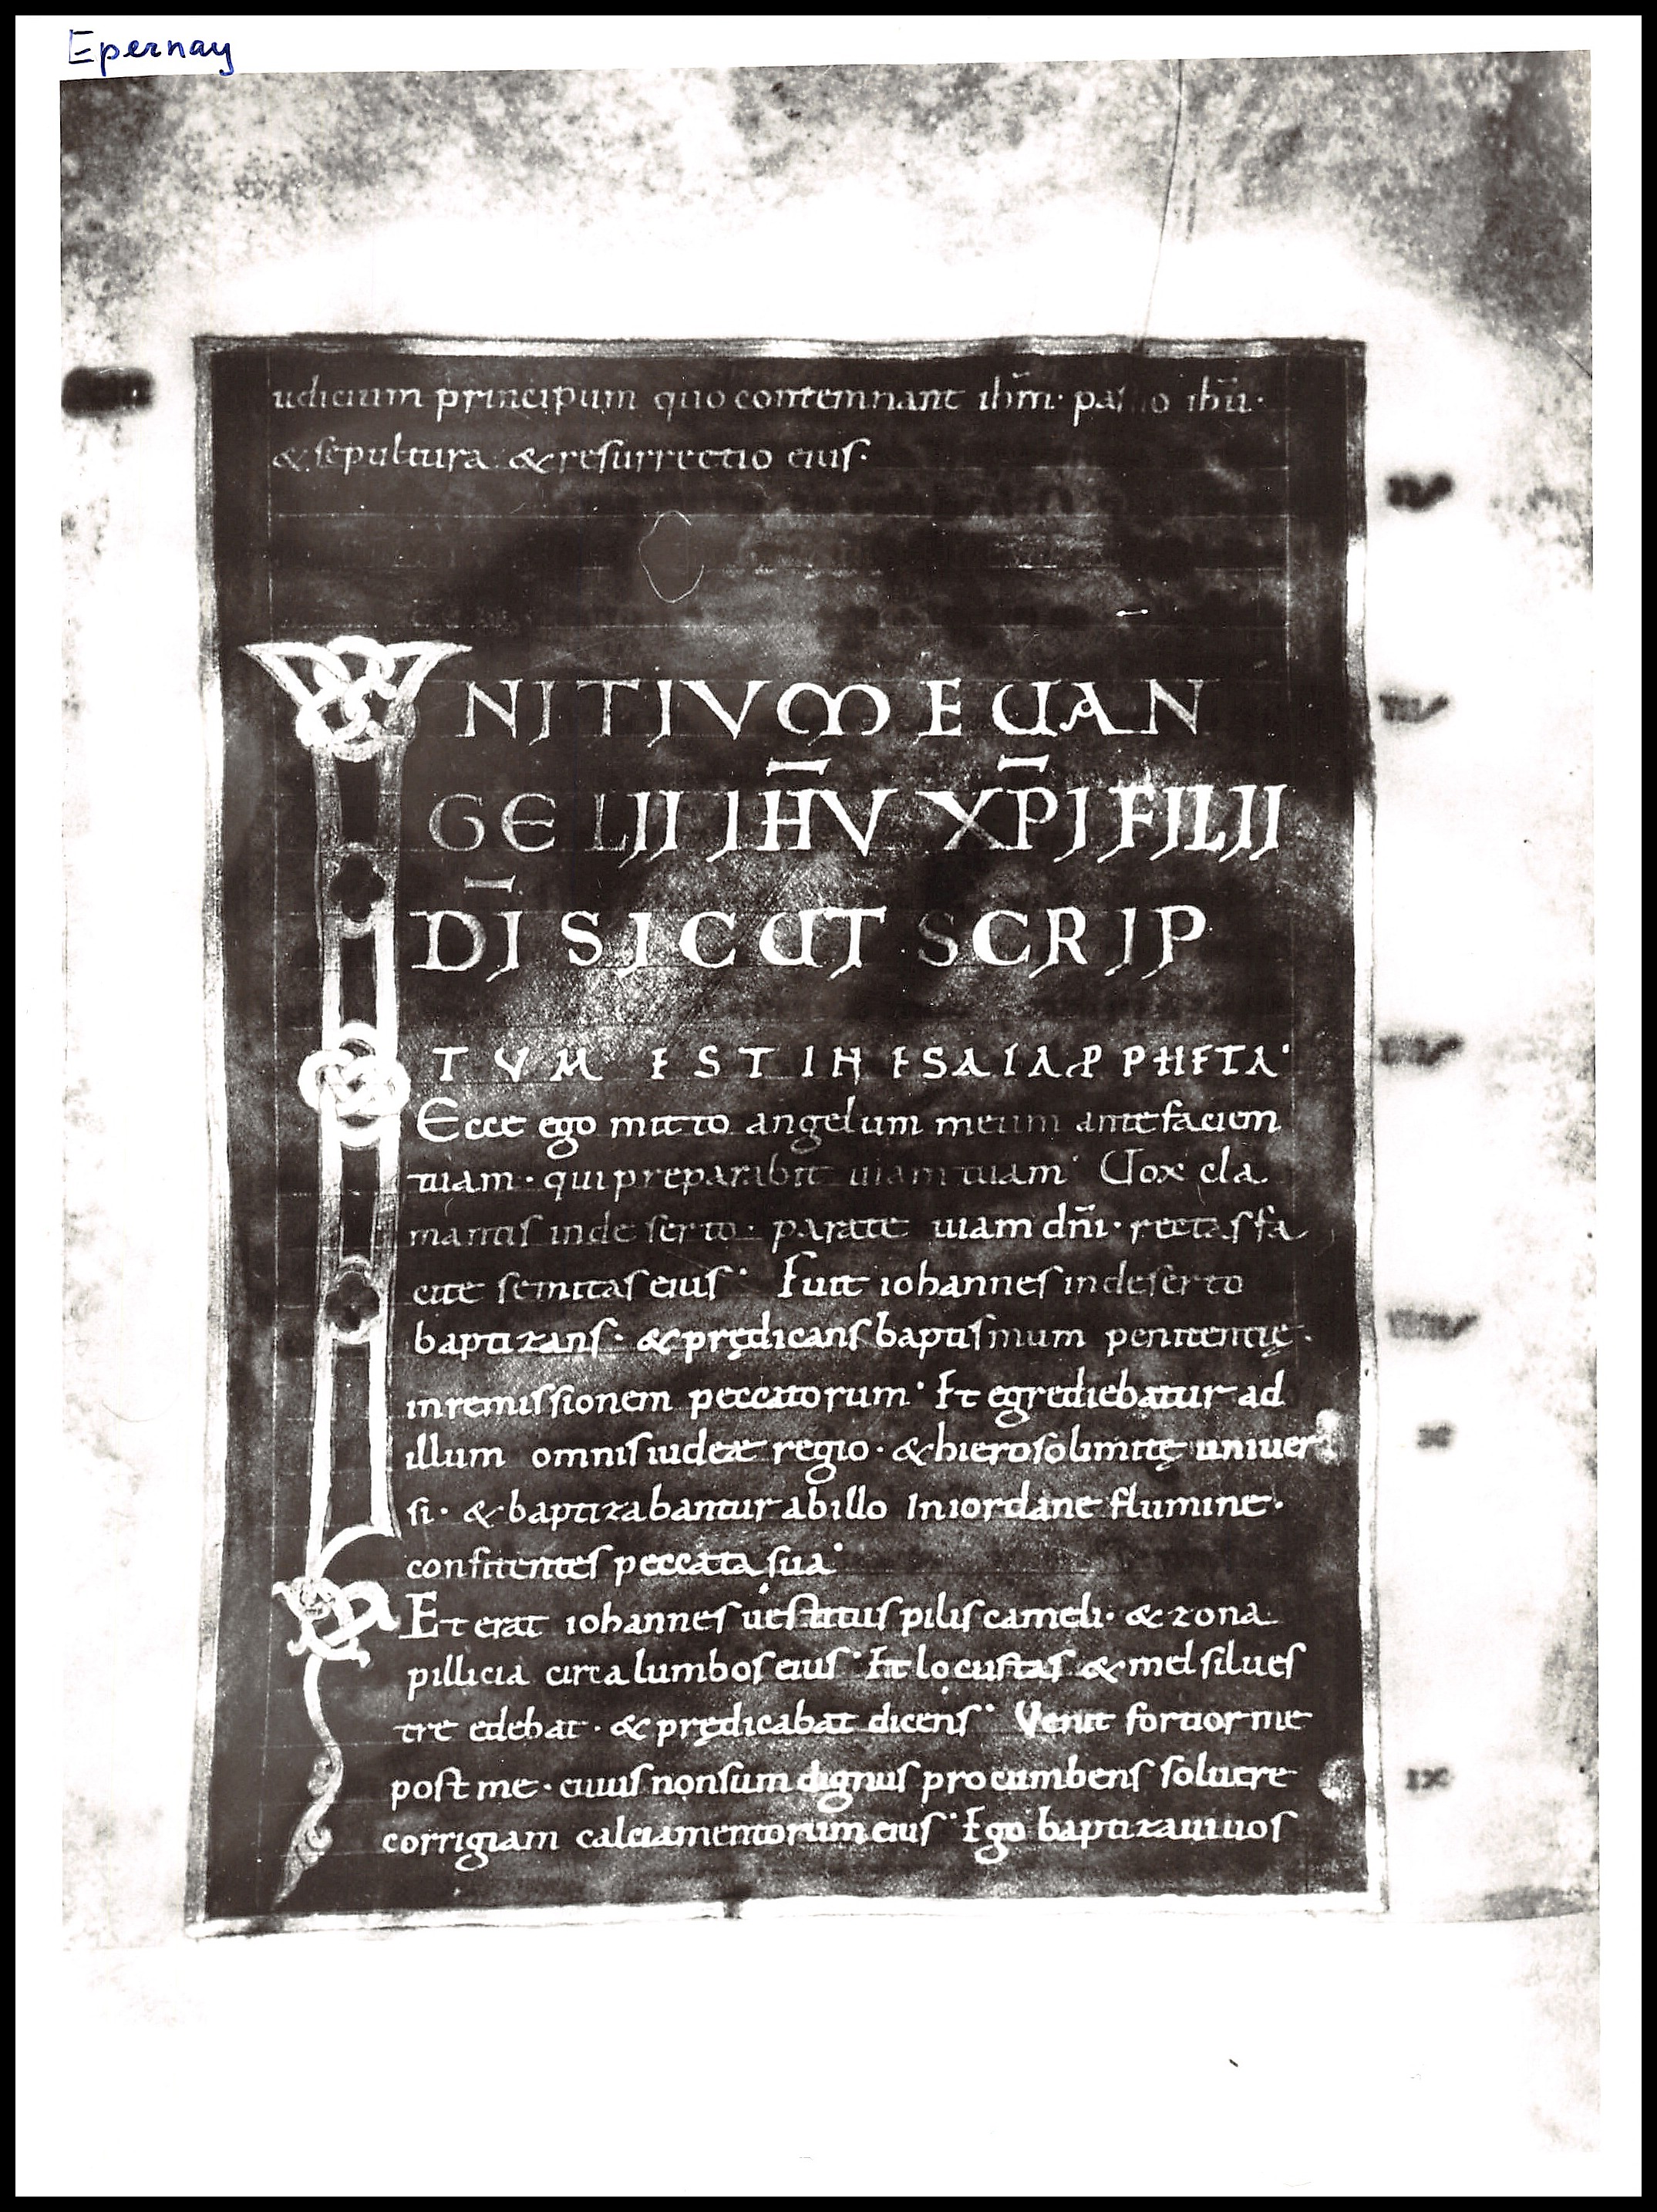 Epernay
udicium principum quo contemnant ihm̄· pas io ihū·
& sepultura· & resurrectio eius·
INITIVM EUAN
GELII IH̄V XP̄I FILII
DĪ SICUT SCRIP
TVM EST IN ESAIA PPHETA·
Ecce ego mitto angelum meum ante faciem
tuam· qui preparabit uiam tuam· Vox cla
mantis in deserto· parate uiam dn̄i· rectas fa
cite semitas eius· Fuit iohannes in deserto
baptizans· & prędicans baptismum penitentię·
in remissionem peccatorum· Et egrediebatur ad
illum omnis iudeæ regio· & hierosolimitę uniuer
si· & baptizabantur ab illo In iordane flumine·
confitentes peccata sua·
Et erat iohannes uestitus pilis cameli· & zona
pillicia circa lumbos eius· Et locustas & mel silues
tre edebat· & prędicabat dicens· Venit fortior me
post me· cuius non sum dignus procumbens soluere
corrigiam calciamentorum eius· Ego baptizaui uos